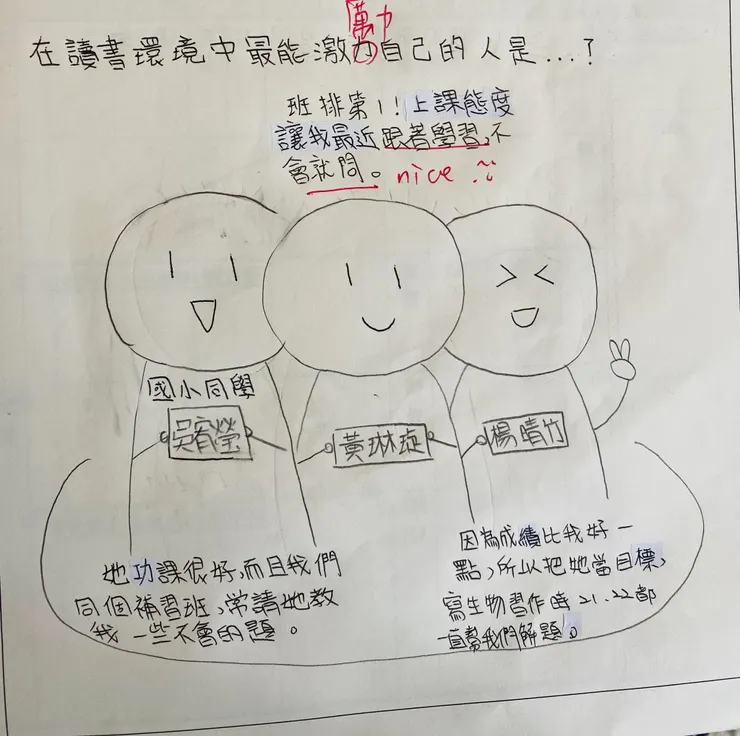 萬力
在讀書環境中最能激力自己的人是...?
班排第1!上課態度
讓我最近跟著學習,不
會就問。nice
國小同學
吳宥瑩
黃琳琁
楊晴竹
她功課很好,而且我們
同個補習班,常請她教
我一些不會的題。
因為成績比我好一
點,所以把她當目標,
寫生物習作時21、22都
一直幫我們解題。